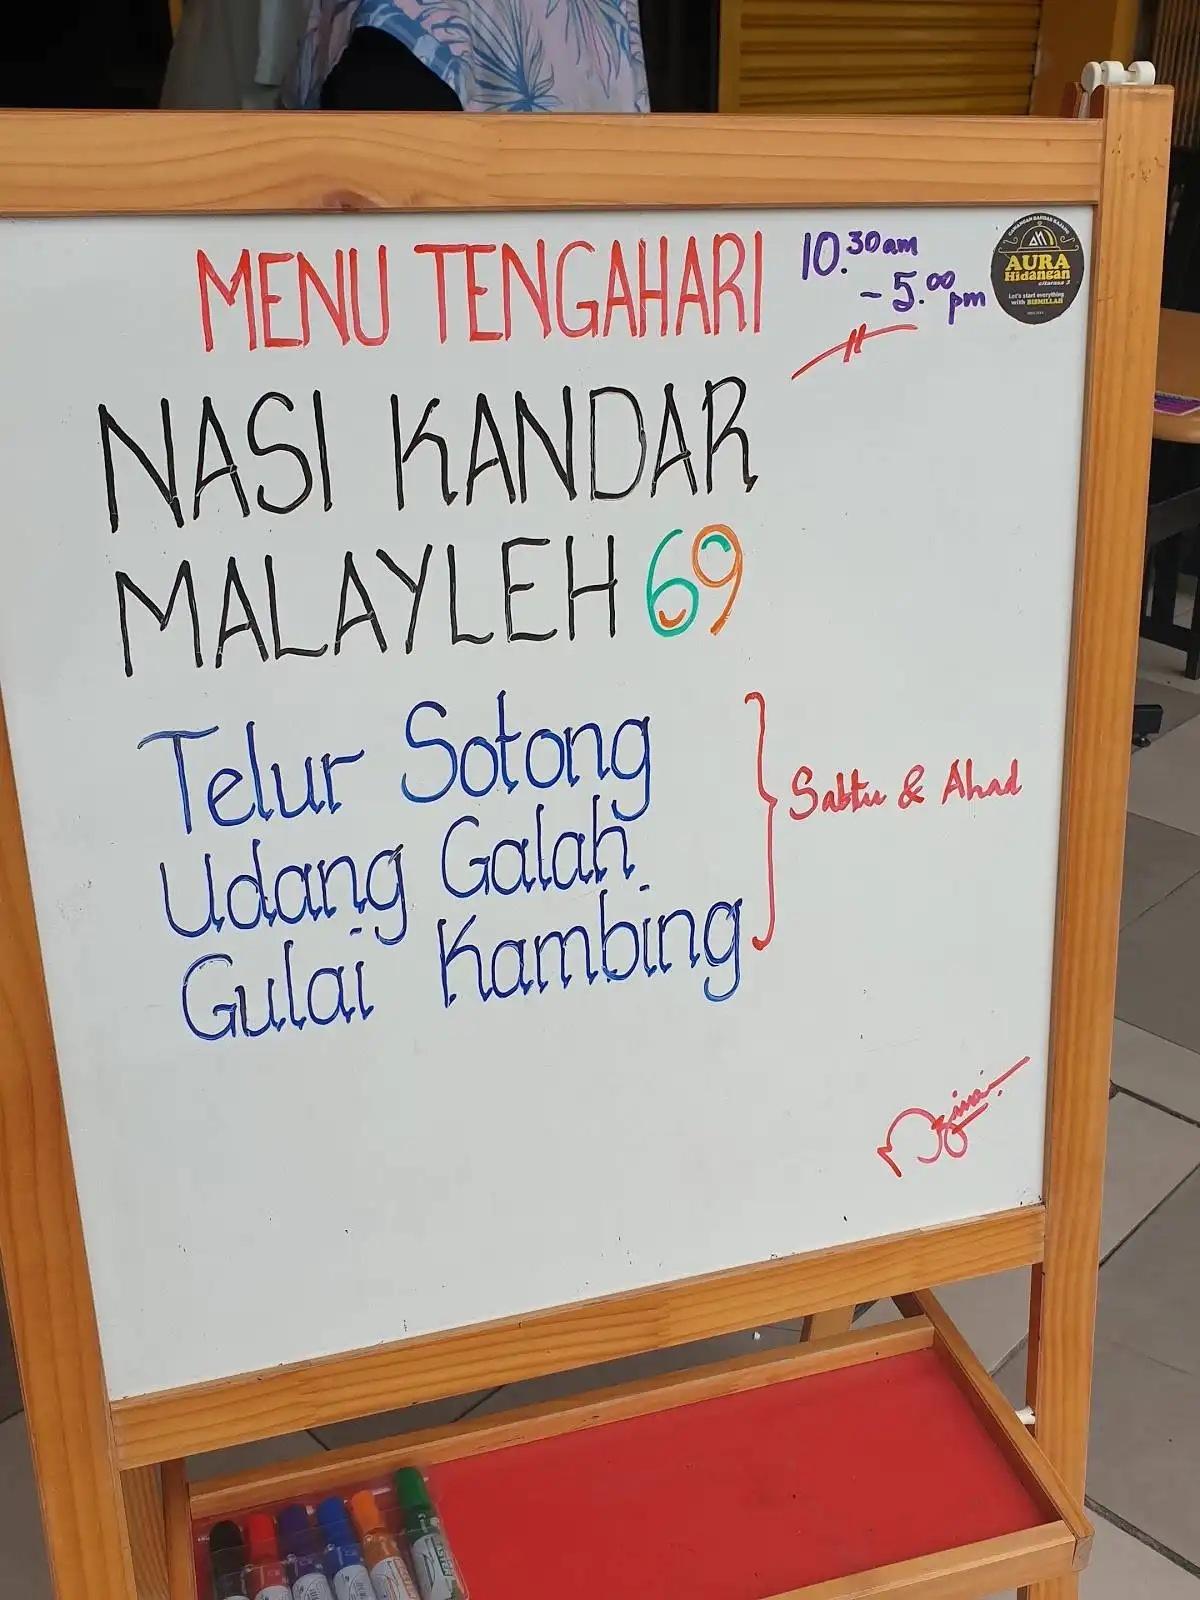 MENU TENGAHARI
10.30am
- 5.00pm
AURA
Hidangan
Let's start everything
with BISMILLAH
NASI KANDAR
MALAYLEH 69
Telur Sotong
Udang Galah
Gulai Kambing
Sabtu & Ahad